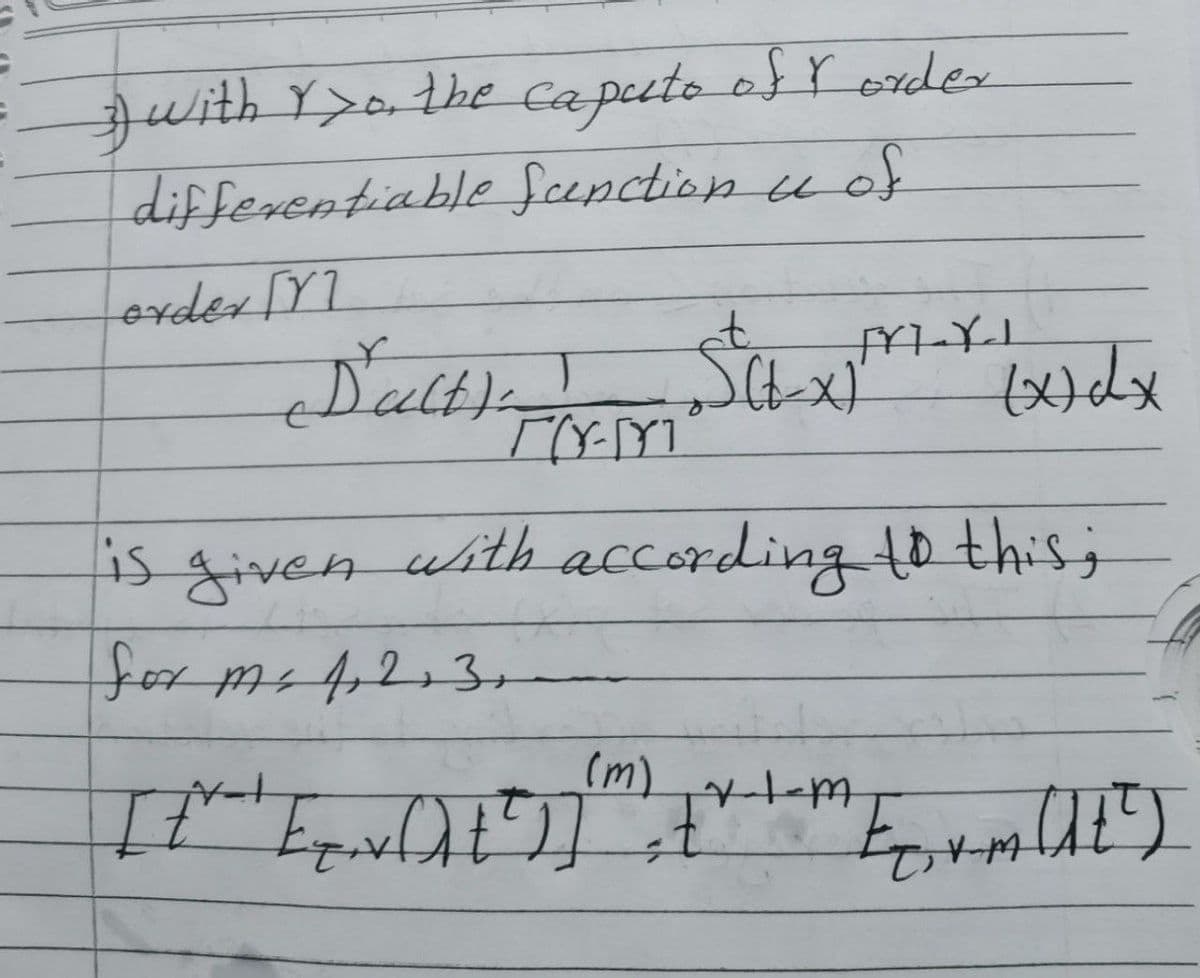 3) with γ>0, the caputo of γ order
differentiable function u of
order ⌈γ⌉
cD^γ u(t) = 1/Γ(γ-⌈γ⌉ ₀∫^t (t-x)^(⌈γ⌉-γ-1) (x)dx
is given with according to this;
for m = 1, 2, 3, —
[t^(v-1) E_τ,v(λt^τ)]^(m) = t^(v-1-m) E_τ,v-m(λt^τ)